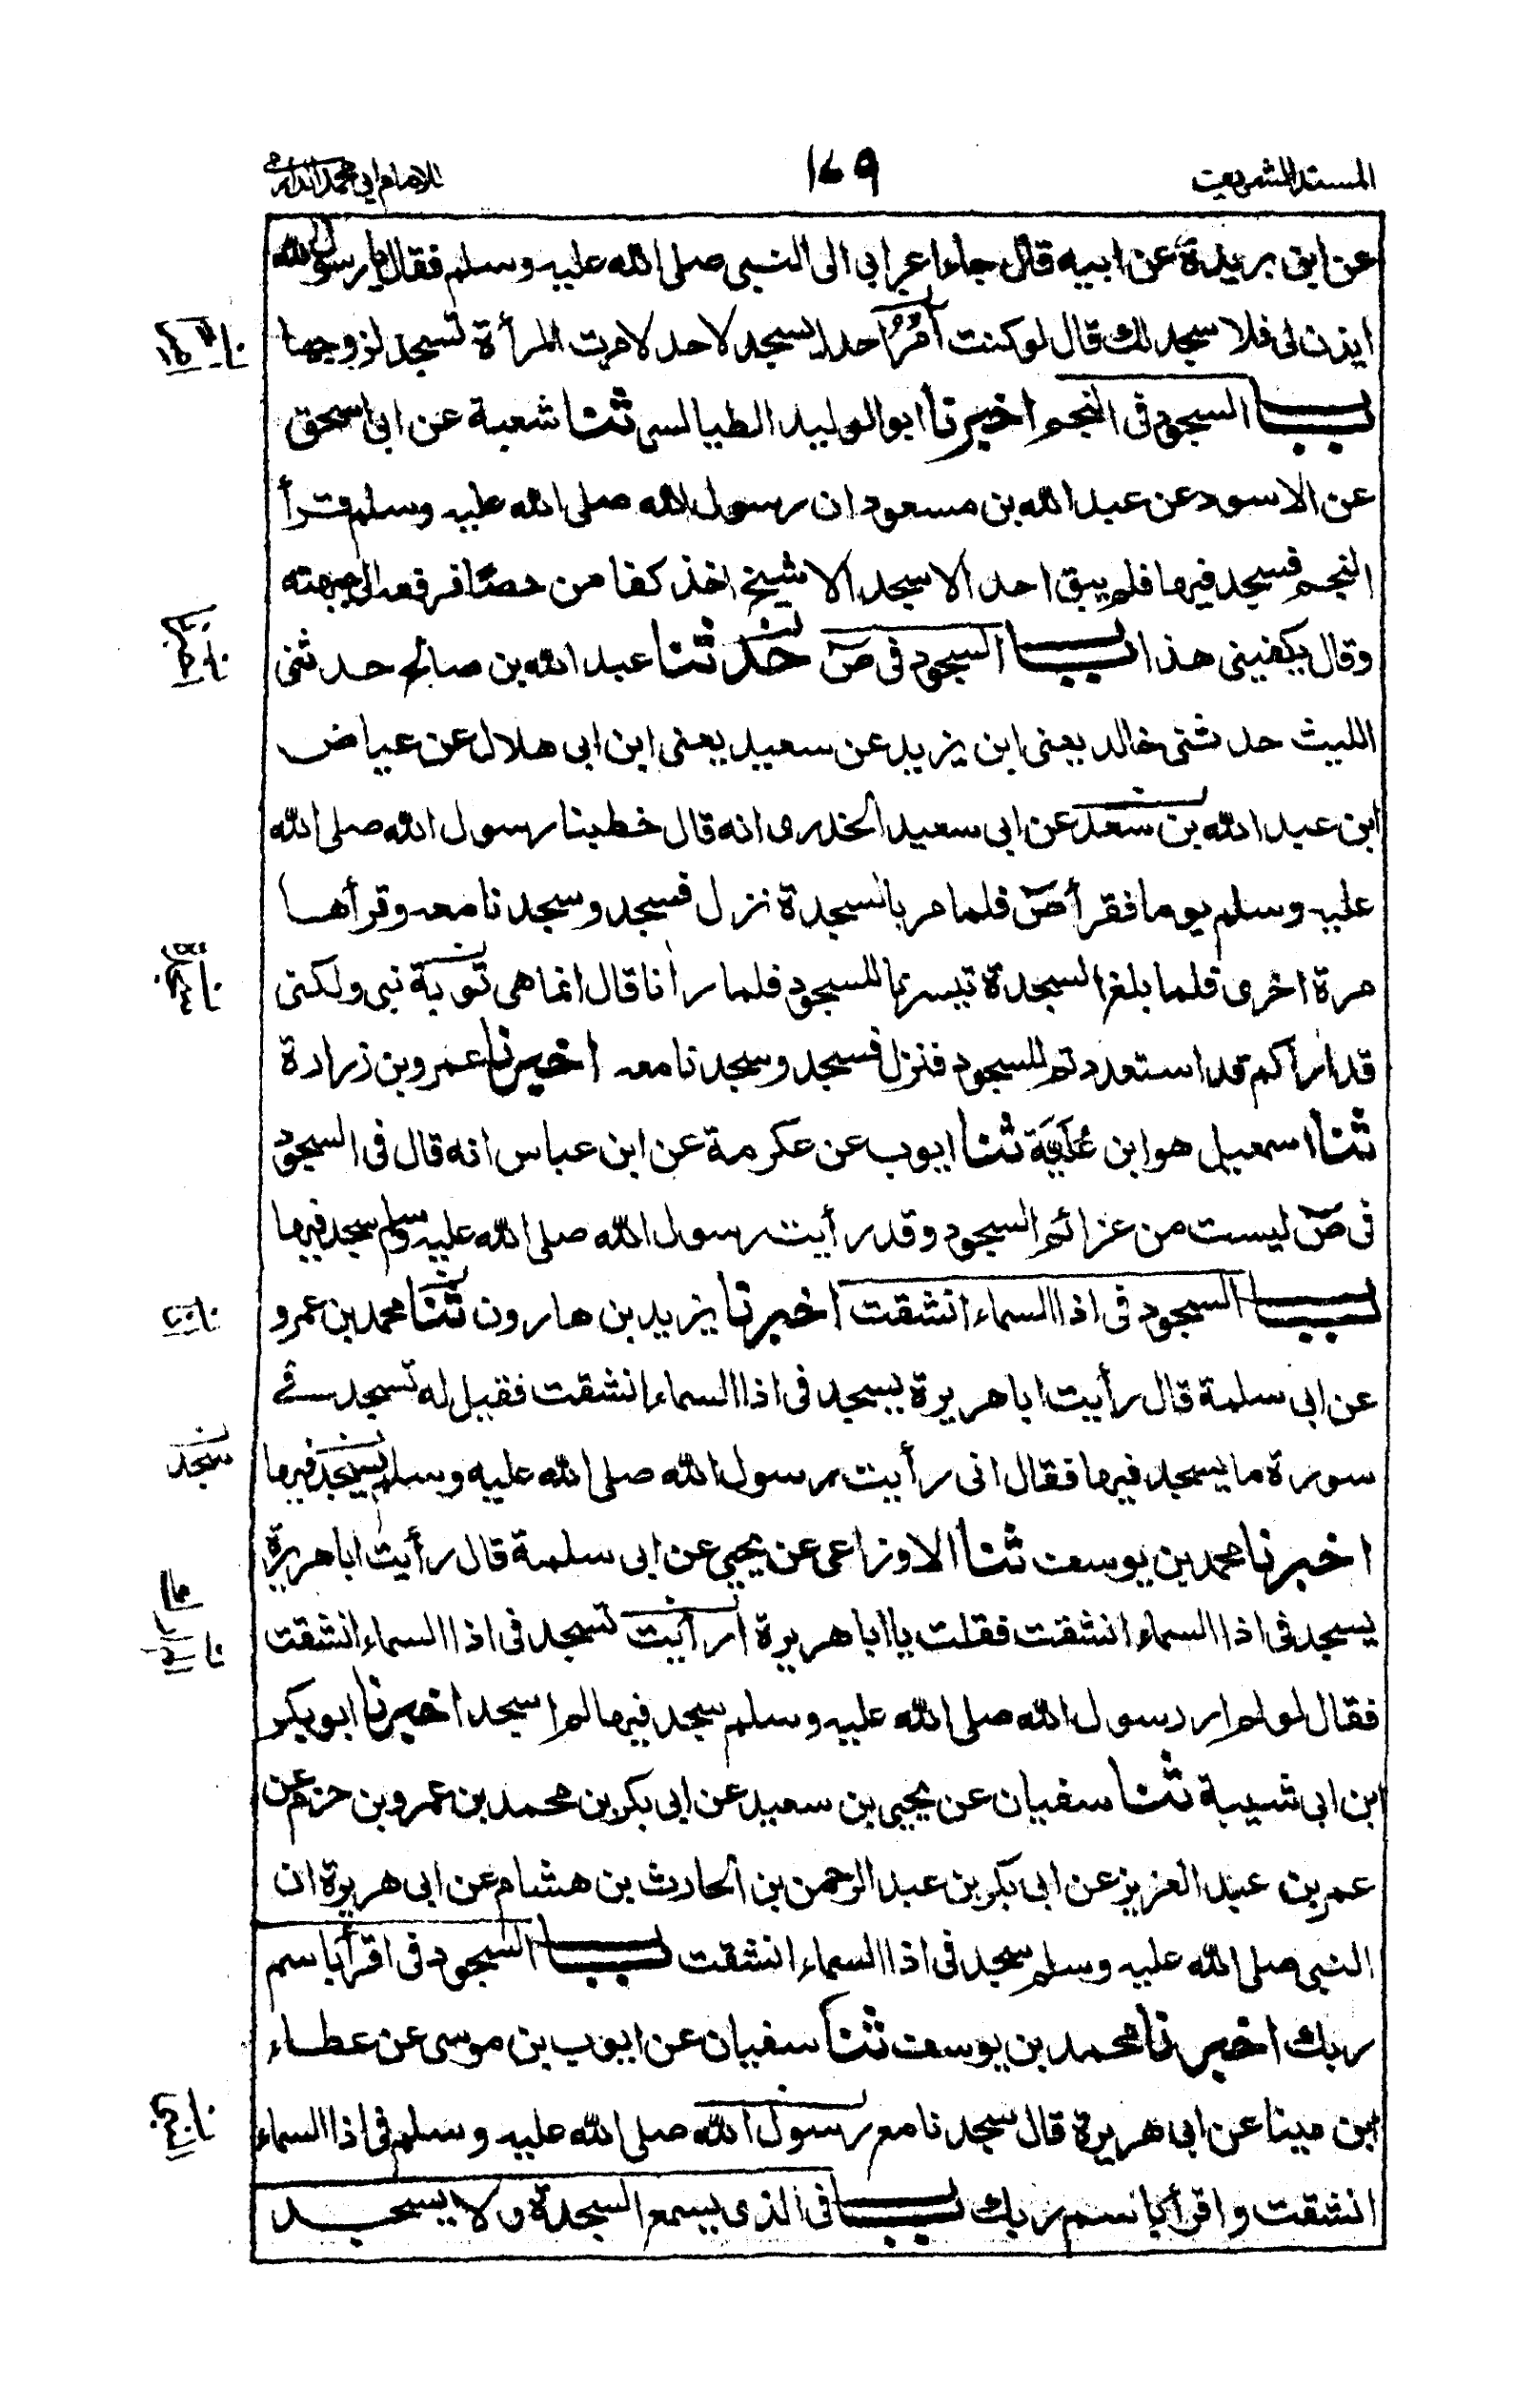 المسند الشريف
١٧٩
للامام ابي محمد الدارمي
عن ابن بريدة عن ابيه قال جاء اعرابي الى النبي صلى الله عليه وسلم فقال يا رسول الله
ايذن لى فلا سجد لك قال لو كنت آمُرُ احدا يسجد لاحد لامرت المرأة تسجد لزوجها
باب السجود فى النجم اخبرنا ابو الوليد الطيالسى ثنا شعبة عن ابى اسحق
عن الاسود عن عبد الله بن مسعود ان رسول الله صلى الله عليه وسلم قرأ
النجم فسجد فيها فلم يبق احد الا سجد الا شيخ اخذ كفا من حصًا فرفعه الى جبهته
وقال يكفينى هذا باب السجود فى صٓ حدثنا عبد الله بن صالح حدثنى
الليث حدثنى خالد يعنى ابن يزيد عن سعيد يعنى ابن ابى هلال عن عياض
ابن عبد الله بن سعد عن ابى سعيد الخدرى انه قال خطبنا رسول الله صلى الله
عليه وسلم يوما فقرأ صٓ فلما مر بالسجدة نزل فسجد وسجدنا معه وقرأها
مرة اخرى فلما بلغ السجدة تيسرنا للسجود فلما رأنا قال انما هى توبة نبى ولكنى
قد اراكم قد استعددتم للسجود فنزل فسجد وسجدنا معه اخبرنا عمرو بن زرارة
ثنا اسمعيل هو ابن عُلَيَّة ثنا ايوب عن عكرمة عن ابن عباس انه قال فى السجود
فى صٓ ليست من عزائم السجود وقد رأيت رسول الله صلى الله عليه وسلم سجد فيها
باب السجود فى اذا السماء انشقت اخبرنا يزيد بن هارون ثنا محمد بن عمرو
عن ابى سلمة قال رأيت ابا هريرة يسجد فى اذا السماء انشقت فقيل له تسجد فى
سورة ما يسجد فيها فقال انى رأيت رسول الله صلى الله عليه وسلم يسجد فيها
سجد
اخبرنا محمد بن يوسف ثنا الاوزاعى عن يحيى عن ابى سلمة قال رأيت ابا هريرة
يسجد فى اذا السماء انشقت فقلت يا ابا هريرة أرأيت تسجد فى اذا السماء انشقت
فقال لو لم ار رسول الله صلى الله عليه وسلم سجد فيها لم اسجد اخبرنا ابو بكر
ابن ابى شيبة ثنا سفيان عن يحيى بن سعيد عن ابى بكر بن محمد بن عمرو بن حزم عن
عمر بن عبد العزيز عن ابى بكر بن عبد الرحمن بن الحارث بن هشام عن ابى هريرة ان
النبى صلى الله عليه وسلم سجد فى اذا السماء انشقت باب السجود فى اقرأ باسم
ربك اخبرنا محمد بن يوسف ثنا سفيان عن ايوب بن موسى عن عطاء
ابن مينا عن ابى هريرة قال سجدنا مع رسول الله صلى الله عليه وسلم فى اذا السماء
انشقت واقرأ باسم ربك باب فى الذى يسمع السجدة ولا يسجد